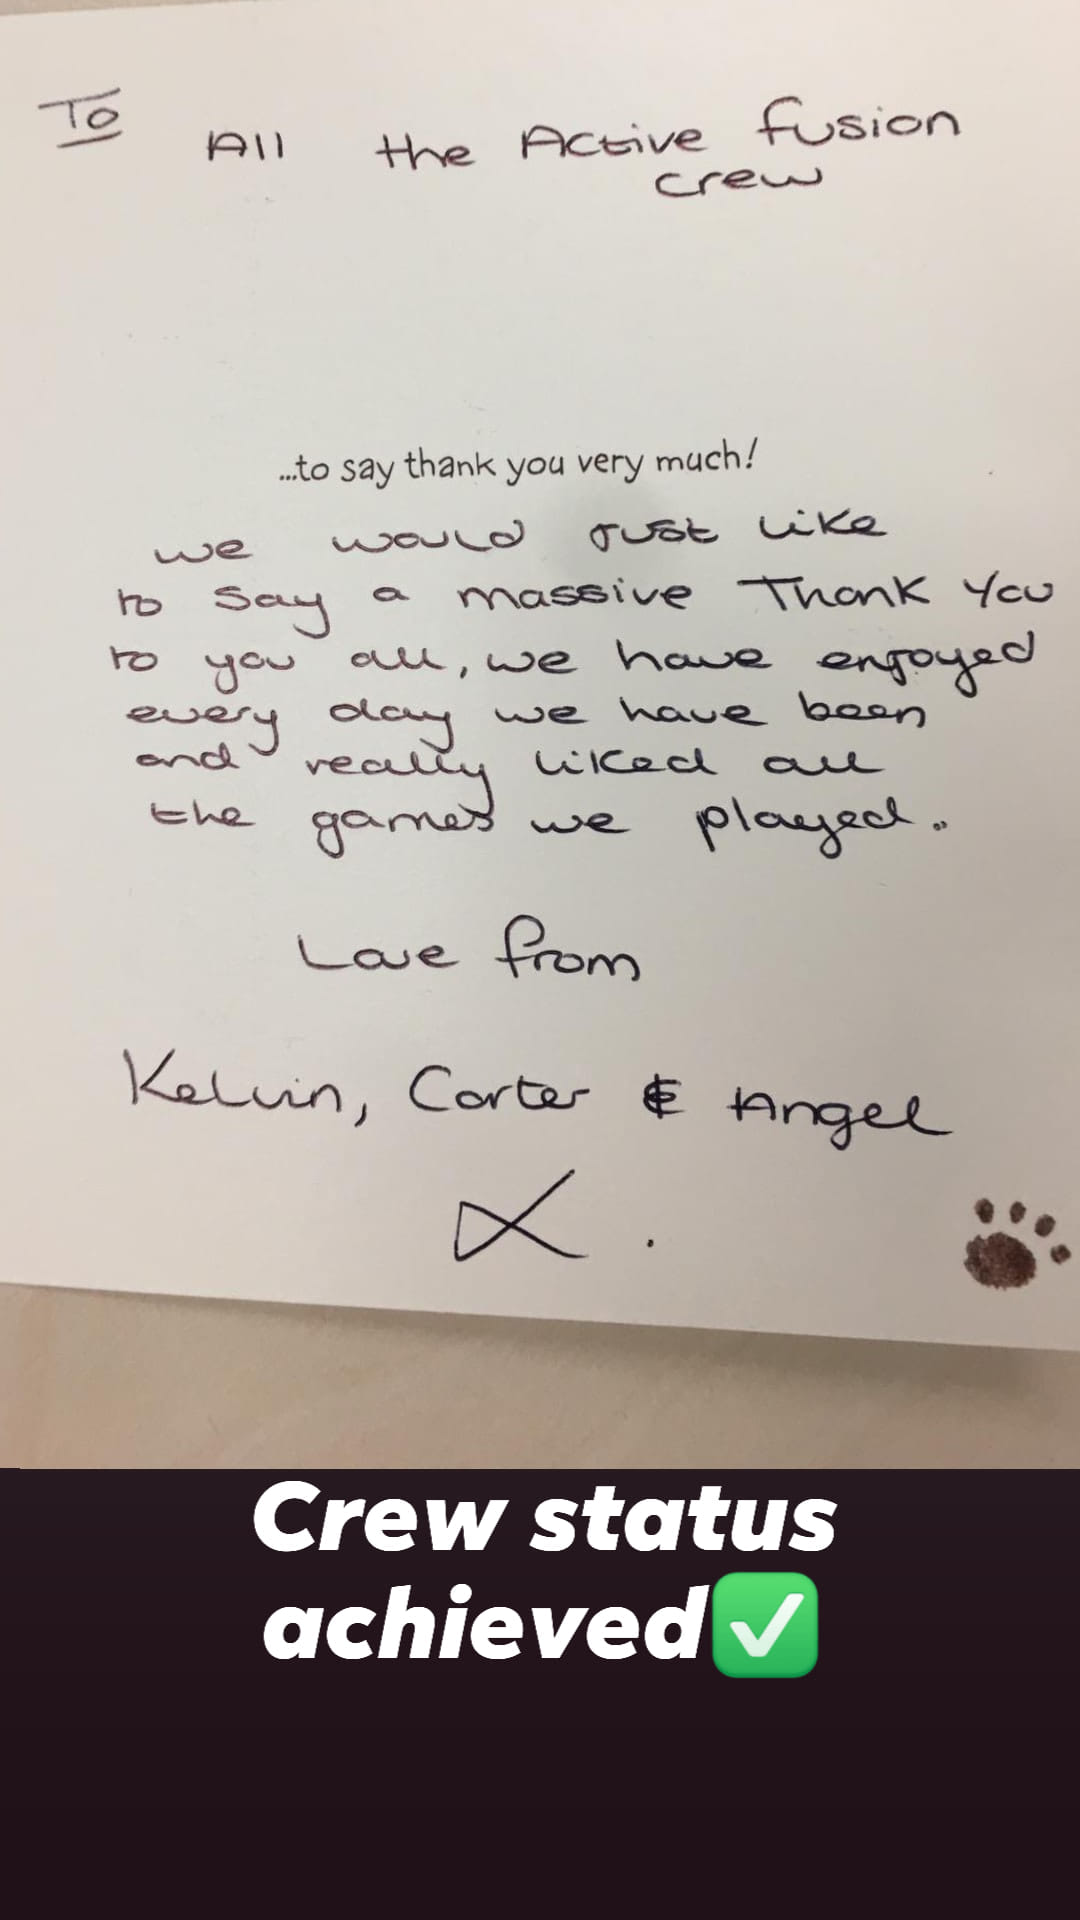 To
All the Active fusion
crew
...to say thank you very much!
we would Just like
to say a massive Thank You
to you all, we have enjoyed
every day we have been
and really liked all
the games we played..
Love from
Kelvin, Carter & Angel
X.
Crew status
achieved✅